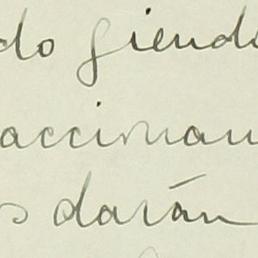 do siendo
accionan
s darán